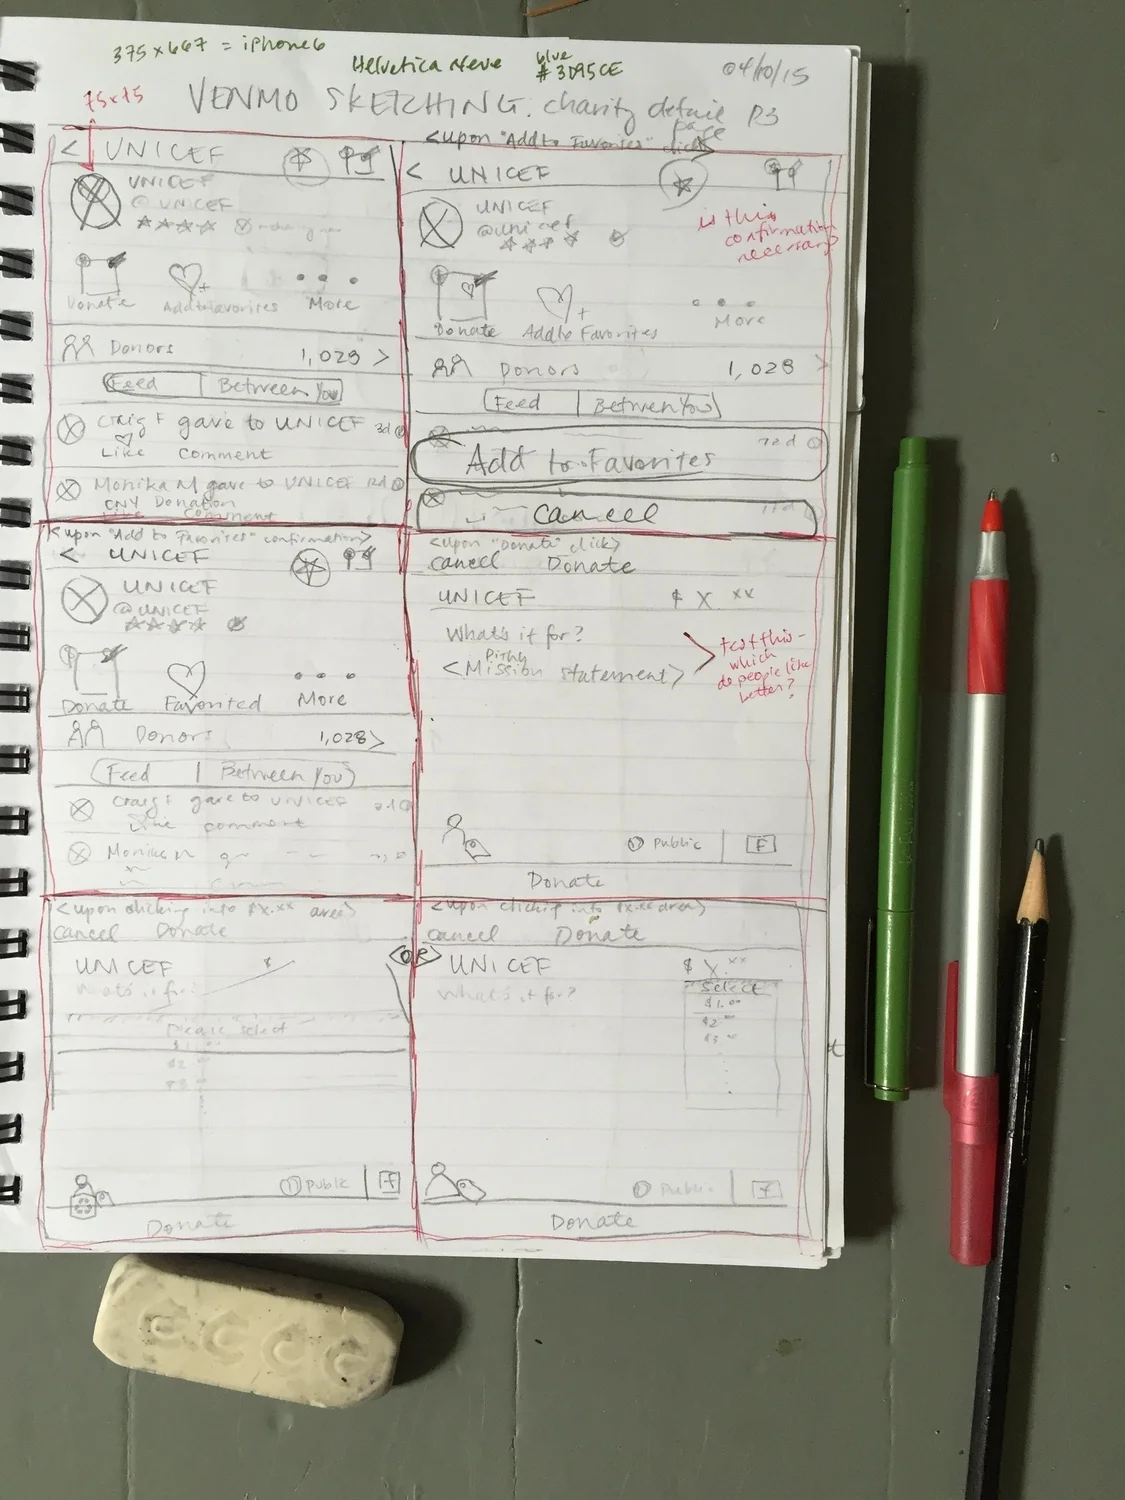 375 x 667 = iphone 6
Helvetica Neue
blue
# 3D95CE
04/10/15
75x75
VENMO SKETCHING. charity detail P3
page
< UNICEF
UNICEF
@UNICEF
Donate Add to Favorites More
Donors 1,029 >
Feed | Between You
Craig F gave to UNICEF 3d
Like Comment
Monika M gave to UNICEF 12d
CNY Donation
Like Comment
<upon "Add to Favorites" click>
< UNICEF
UNICEF
@unicef
is this
confirmation
necessary
Donate Add to Favorites More
Donors 1,028 >
Feed | Between You
12d
Add to Favorites
Cancel
<upon "Add to Favorites" confirmation>
< UNICEF
UNICEF
@UNICEF
Donate Favorited More
Donors 1,028 >
Feed | Between You
Craig F gave to UNICEF
Like comment
Monika M
<upon "Donate" click>
Cancel Donate
UNICEF $ X.xx
What's it for?
Pithy
<Mission statement>
test this -
which
do people like
better?
Public | F
Donate
<upon clicking into $x.xx area>
Cancel Donate
UNICEF
What's it for?
Please select
$1.00
$2.00
$3.00
Public | F
Donate
<OR>
<upon clicking into $x.xx area>
Cancel Donate
UNICEF $ X.xx
What's it for?
Select
$1.00
$2.00
$3.00
Public | F
Donate